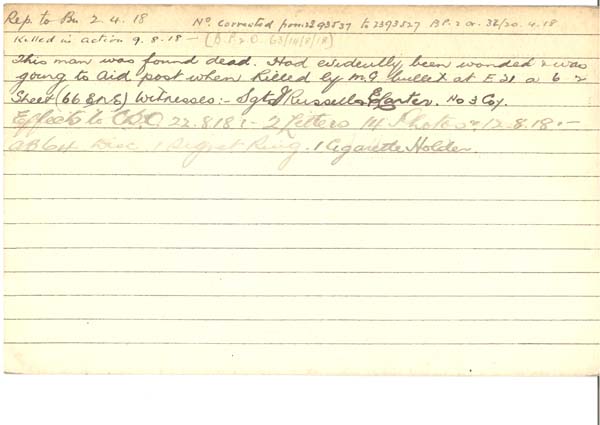 Rep. to Bn 2.4.18 No. Corrected from 2393537 to 2393527 B.P. 2 Or. 32/20.4.18
Killed in action 9.8.18 — (B.P. 2 O. 63/14/8/18)
This man was found dead. Had evidently been wonded & was
going to aid post when killed by M.G. bullet at E 21 a 6 2
Sheet (66 E N.E) Witnesses:- Sgt J Russell & Carter. No 3 Coy.
Effects to 22.8.18 :- 2 Letters 14 Photos 12.8.18 :-
AB64 Disc 1 Signet Ring. 1 Cigarette Holder.